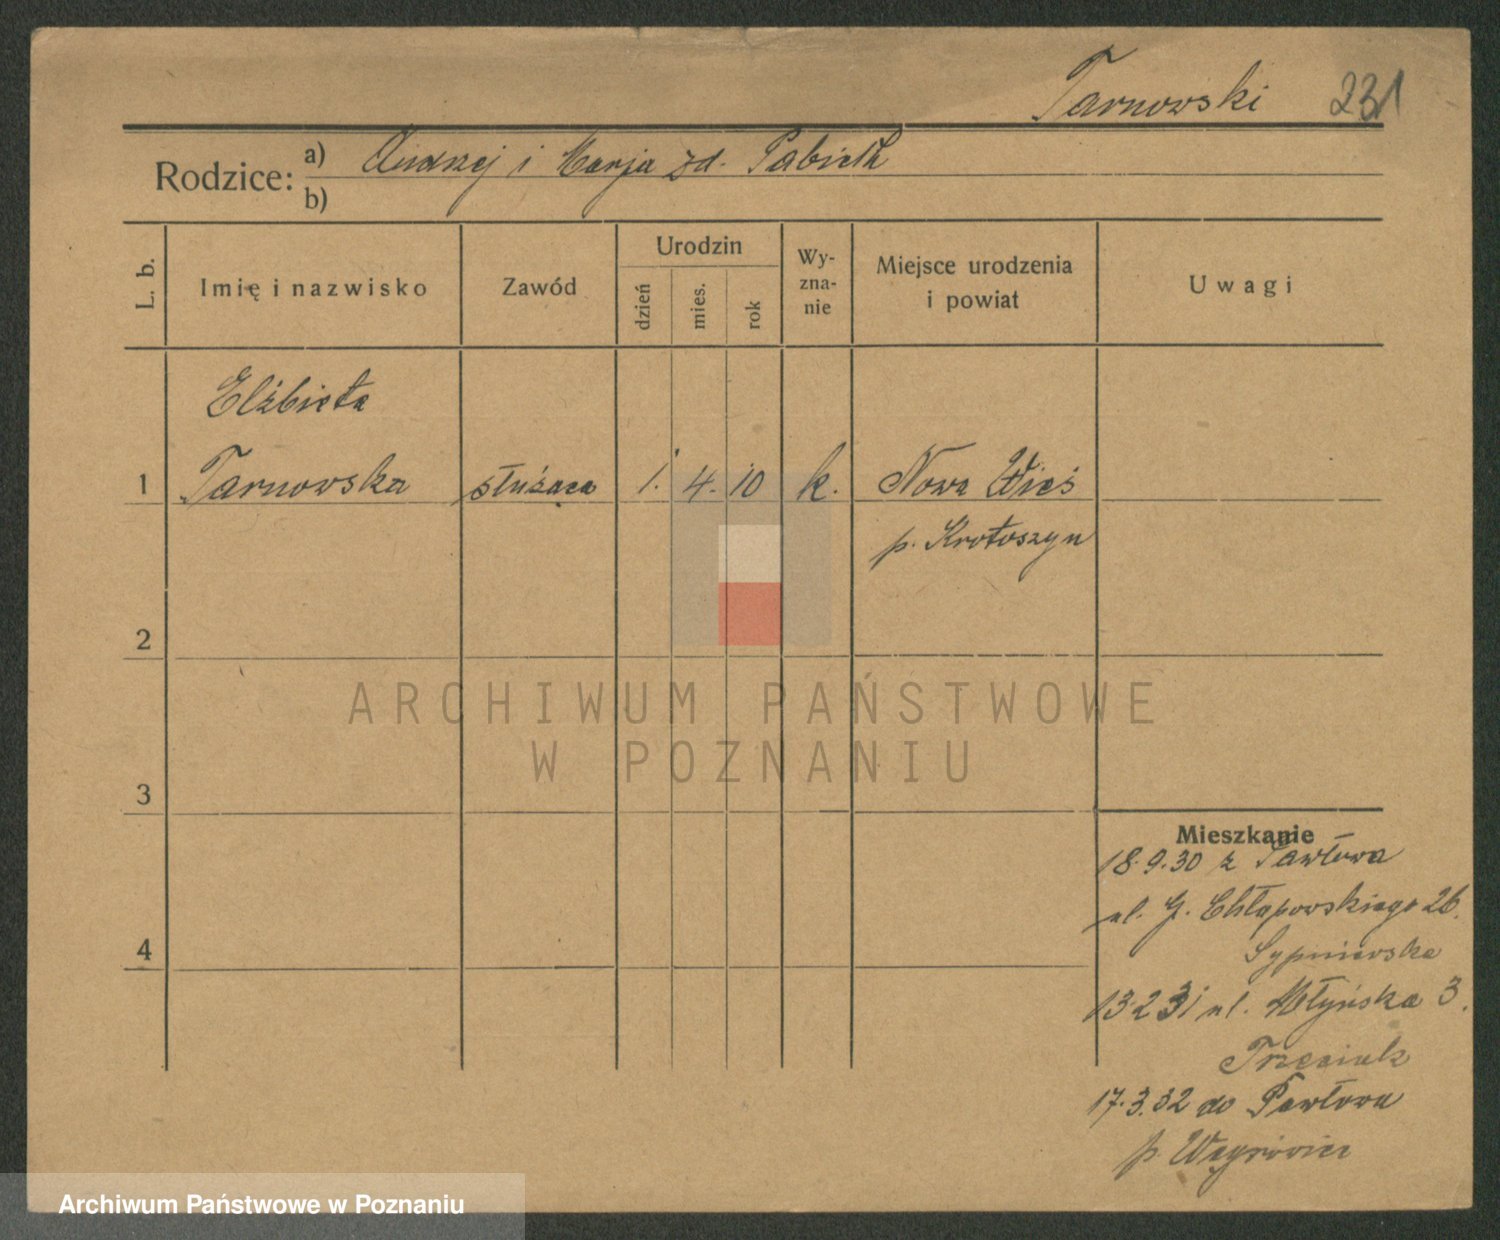 Tarnowski 231
Rodzice: a) Andrzej i Marja zd. Pabich
b)
L. b.
Imię i nazwisko
Zawód
Urodzin
dzień
mies.
rok
Wy-
zna-
nie
Miejsce urodzenia
i powiat
Uwagi
Elżbieta
1 Tarnowska służąca 1. 4. 10 k. Nowa Wieś
p. Krotoszyn
2
3
4
Mieszkanie
18.9.30 z Pawłowa
ul. G. Chłapowskiego 26.
Sypniewska
13.2 31 ul. Młyńska 3.
Trzeciak
17.3.32 do Pawłowa
p. Wągrówiec
ARCHIWUM PAŃSTWOWE
W POZNANIU
Archiwum Państwowe w Poznaniu